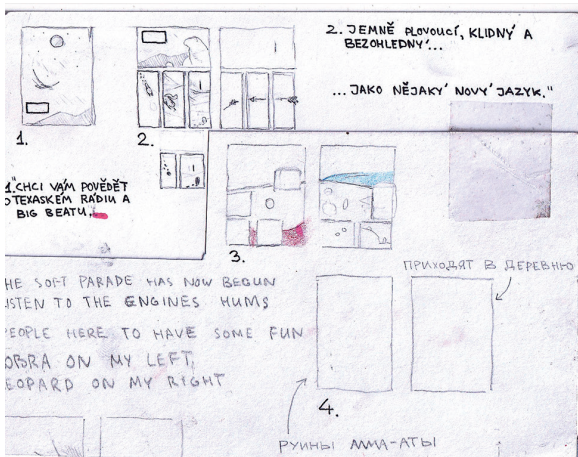 2. JEMNĚ PLOVOUCÍ, KLIDNÝ A
BEZOHLEDNÝ...
...JAKO NĚJAKÝ NOVÝ JAZYK."
1.
2.
1. "CHCI VÁM POVĚDĚT
O TEXASKÉM RÁDIU A
BIG BEATU.
3.
HE SOFT PARADE HAS NOW BEGUN
ISTEN TO THE ENGINES HUMS
PEOPLE HERE TO HAVE SOME FUN
OBRA ON MY LEFT,
EOPARD ON MY RIGHT
ПРИХОДЯТ В ДЕРЕВНЮ
4.
РУИНЫ АЛМА-АТЫ